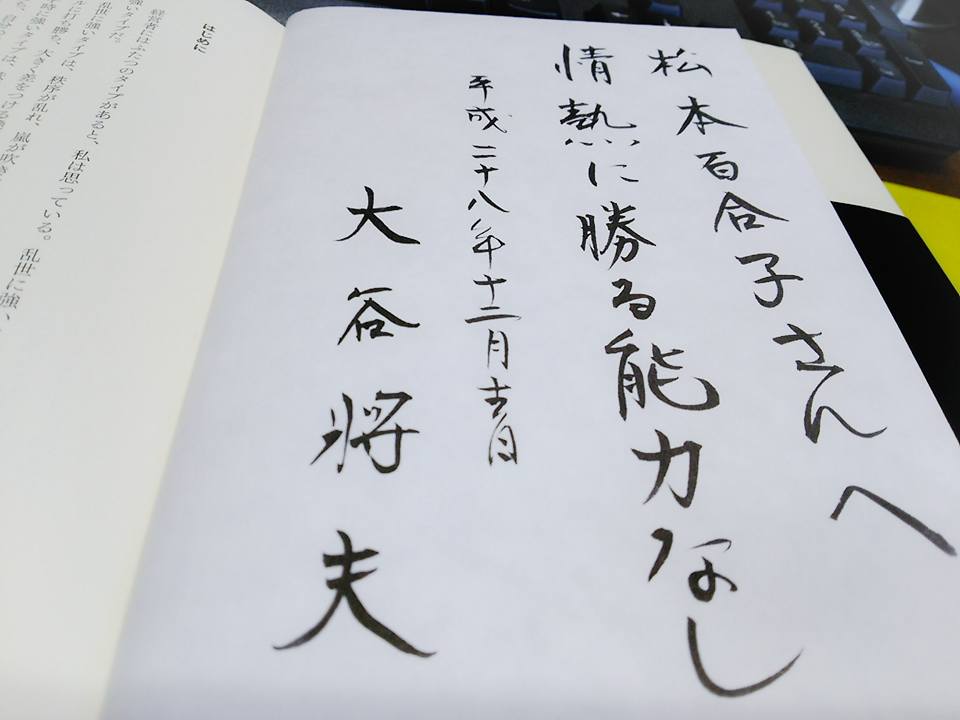 松本百合子さんへ
情熱に勝る能力なし
平成二十八年十二月吉日
大谷将夫
はじめに
経営者にはふたつのタイプがあると、私は思っている。乱世に強い、
乱世に強いタイプは、秩序が乱れ、嵐が吹き
打ち勝ち、大きく差をつける